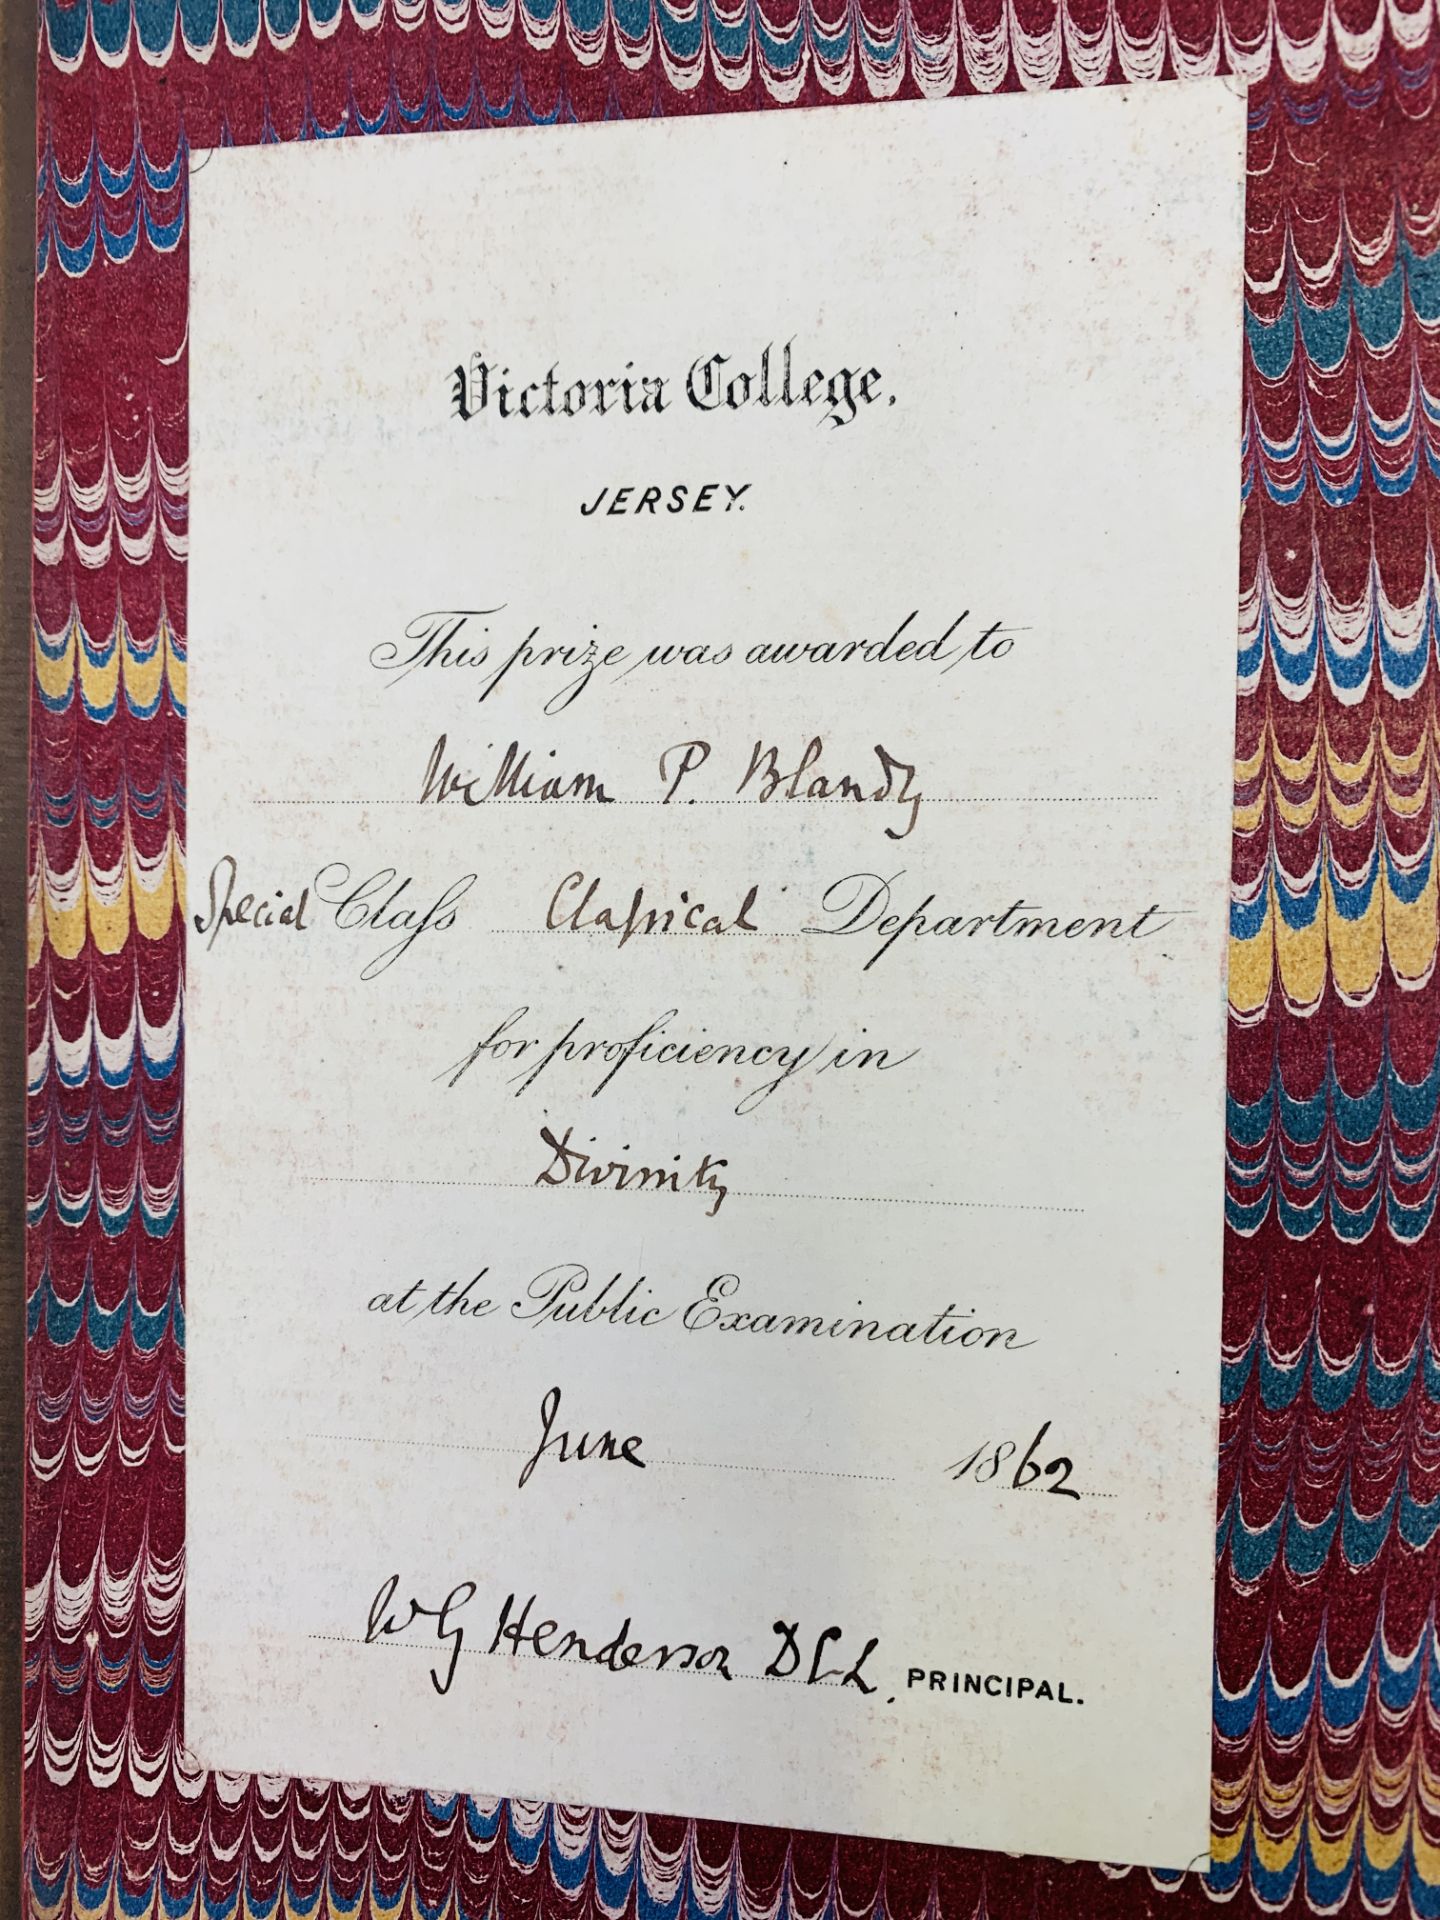 Victoria College.
JERSEY.
This prize was awarded to
William P. Blandy
Special Claſs Claſsical Department
for proficiency in
Divinity
at the Public Examination
June 1862
W G Henderson D C L, PRINCIPAL.